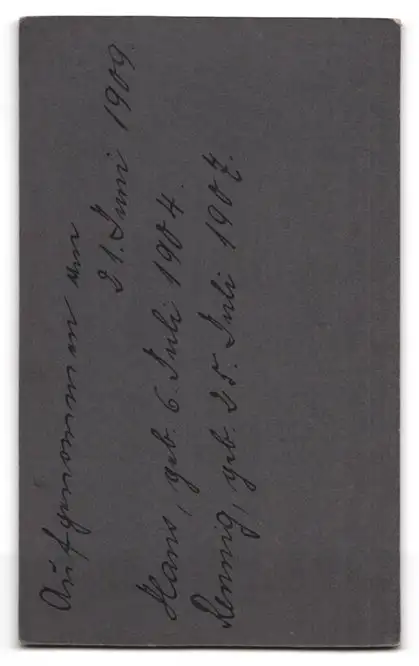 Aufgenommen am
21. Juni 1909.
Hans, geb. 6. Juli 1904.
Hennig, geb. 25. Juli 1907.